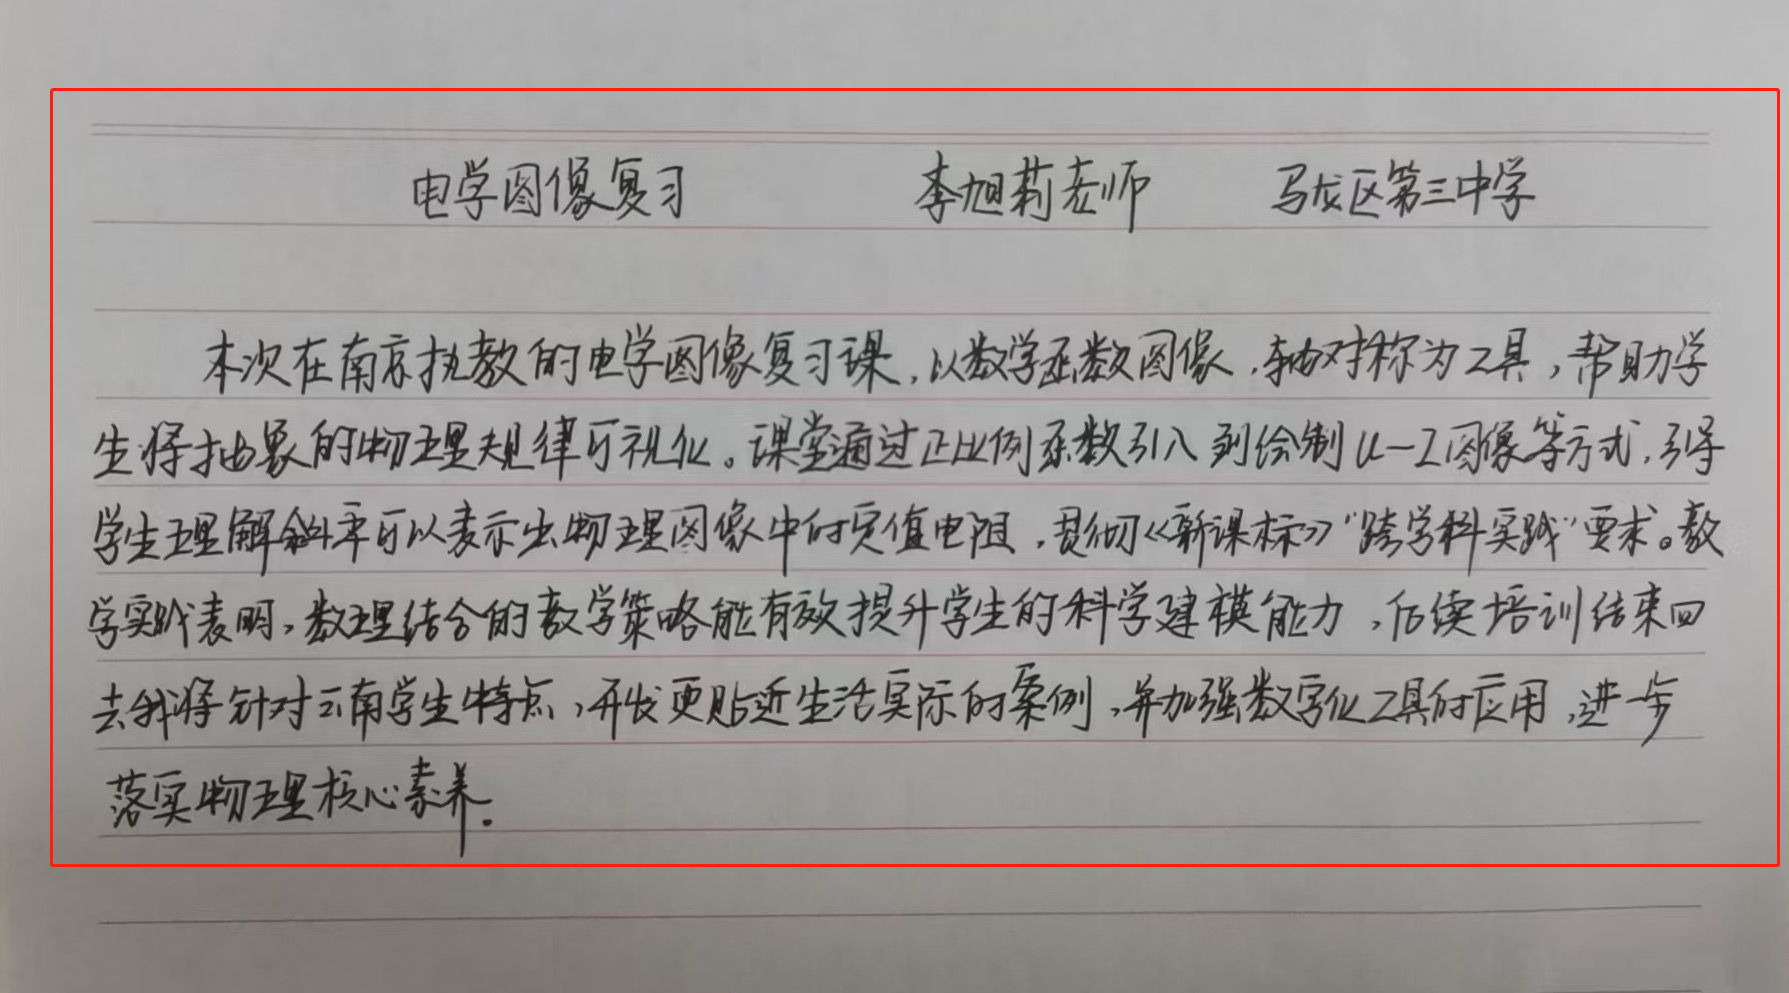 电学图像复习 李旭莉老师 马龙区第三中学
本次在南京执教的电学图像复习课，以数学函数图像，轴对称为工具，帮助学
生将抽象的物理规律可视化。课堂通过正比例系数引入到绘制U-I图像等方式，引导
学生理解斜率可以表示出物理图像中的定值电阻，贯彻《新课标》“跨学科实践”要求。教
学实践表明，数理结合的教学策略能有效提升学生的科学建模能力，后续培训结束回
去我将针对云南学生特点，开发更贴近生活实际的案例，并加强数字化工具的应用，进一步
落实物理核心素养.